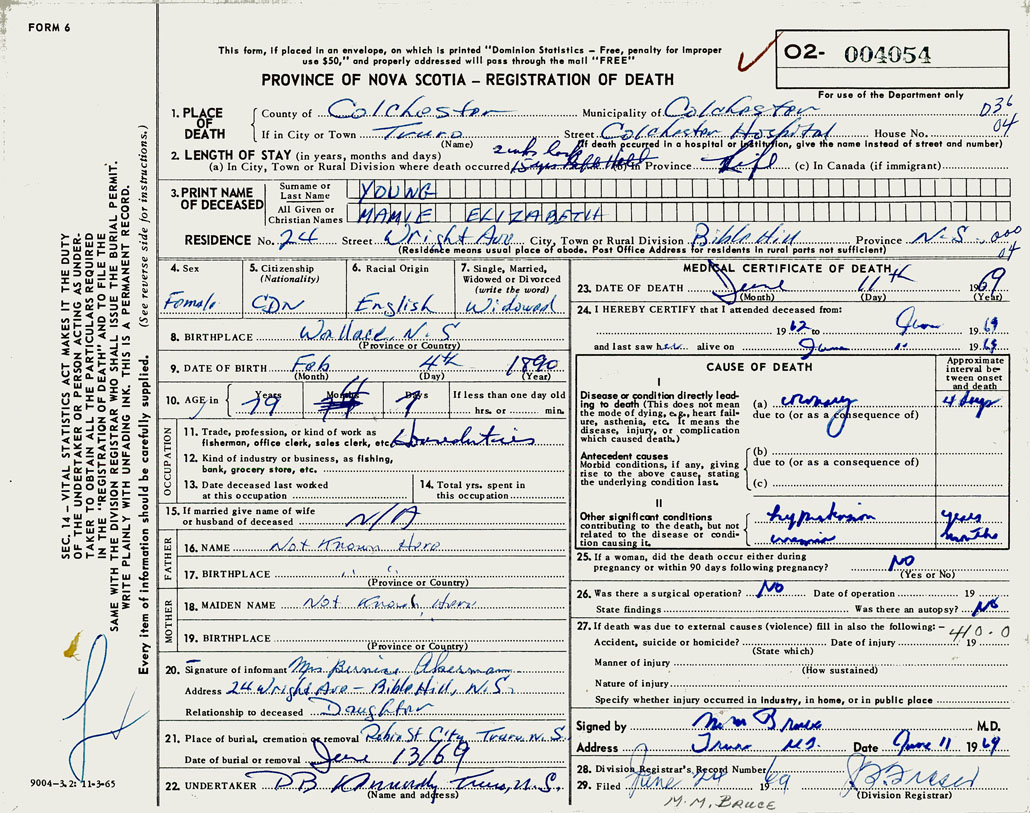 FORM 6
This form, if placed in an envelope, on which is printed "Dominion Statistics – Free, penalty for improper
use $50," and properly addressed will pass through the mail "FREE"
PROVINCE OF NOVA SCOTIA – REGISTRATION OF DEATH
O2- 004054
For use of the Department only
1. PLACE OF DEATH County of Colchester Municipality of Colchester D36
If in City or Town Truro (Name) Street Colchester Hospital House No. 04
(If death occurred in a hospital or institution, give the name instead of street and number)
2. LENGTH OF STAY (in years, months and days)
(a) In City, Town or Rural Division where death occurred (b) In Province Life (c) In Canada (if immigrant)
3. PRINT NAME OF DECEASED Surname or Last Name YOUNG
All Given or Christian Names MAMIE ELIZABETH
RESIDENCE No. 24 Street Wright Ave City, Town or Rural Division Bible Hill Province N.S. 000
04
(Residence means usual place of abode. Post Office Address for residents in rural parts not sufficient)
4. Sex Female
5. Citizenship (Nationality) CDN
6. Racial Origin English
7. Single, Married, Widowed or Divorced (write the word) Widowed
8. BIRTHPLACE Wallace, N.S
(Province or Country)
9. DATE OF BIRTH Feb 4th 1890
(Month) (Day) (Year)
10. AGE in Years 79 Months 4 Days 7 If less than one day old
hrs. or min.
OCCUPATION
11. Trade, profession, or kind of work as fisherman, office clerk, sales clerk, etc. Houseduties
12. Kind of industry or business, as fishing, bank, grocery store, etc.
13. Date deceased last worked at this occupation
14. Total yrs. spent in this occupation
15. If married give name of wife or husband of deceased N/A
FATHER
16. NAME Not Known Here
17. BIRTHPLACE " "
(Province or Country)
MOTHER
18. MAIDEN NAME Not Known Here
19. BIRTHPLACE
(Province or Country)
20. Signature of informant Mrs Bernice Akerman
Address 24 Wright Ave – Bible Hill, N.S.
Relationship to deceased Daughter
21. Place of burial, cremation or removal Robie St City Truro N.S.
Date of burial or removal June 13/69
22. UNDERTAKER DB Kennedy Truro, N.S.
(Name and address)
MEDICAL CERTIFICATE OF DEATH
23. DATE OF DEATH June 11th 1969
(Month) (Day) (Year)
24. I HEREBY CERTIFY that I attended deceased from:
1962 to June 1969
and last saw her alive on June 11 1969
CAUSE OF DEATH
Approximate interval between onset and death
I
Disease or condition directly leading to death (This does not mean the mode of dying, e.g., heart failure, asthenia, etc. It means the disease, injury, or complication which caused death.)
(a) coronary 4 days
due to (or as a consequence of)
Antecedent causes
Morbid conditions, if any, giving rise to the above cause, stating the underlying condition last.
(b)
due to (or as a consequence of)
(c)
II
Other significant conditions contributing to the death, but not related to the disease or condition causing it.
hypertension years
months
25. If a woman, did the death occur either during pregnancy or within 90 days following pregnancy? NO
(Yes or No)
26. Was there a surgical operation? NO Date of operation 19
State findings Was there an autopsy? NO
27. If death was due to external causes (violence) fill in also the following: – 410.0
Accident, suicide or homicide? Date of injury 19
(State which)
Manner of injury
(How sustained)
Nature of injury
Specify whether injury occurred in industry, in home, or in public place
Signed by M M Bruce M.D.
Address Truro NS. Date June 11 1969
28. Division Registrar's Record Number
29. Filed June 24 1969
(Division Registrar)
M.M. BRUCE
SEC. 14 – VITAL STATISTICS ACT MAKES IT THE DUTY
OF THE UNDERTAKER OR PERSON ACTING AS UNDER-
TAKER TO OBTAIN ALL THE PARTICULARS REQUIRED
IN THE "REGISTRATION OF DEATH" AND TO FILE THE
SAME WITH THE DIVISION REGISTRAR WHO SHALL ISSUE THE BURIAL PERMIT.
WRITE PLAINLY WITH UNFADING INK. THIS IS A PERMANENT RECORD.
Every item of information should be carefully supplied. (See reverse side for instructions.)
9004–3.2: 11-3-65